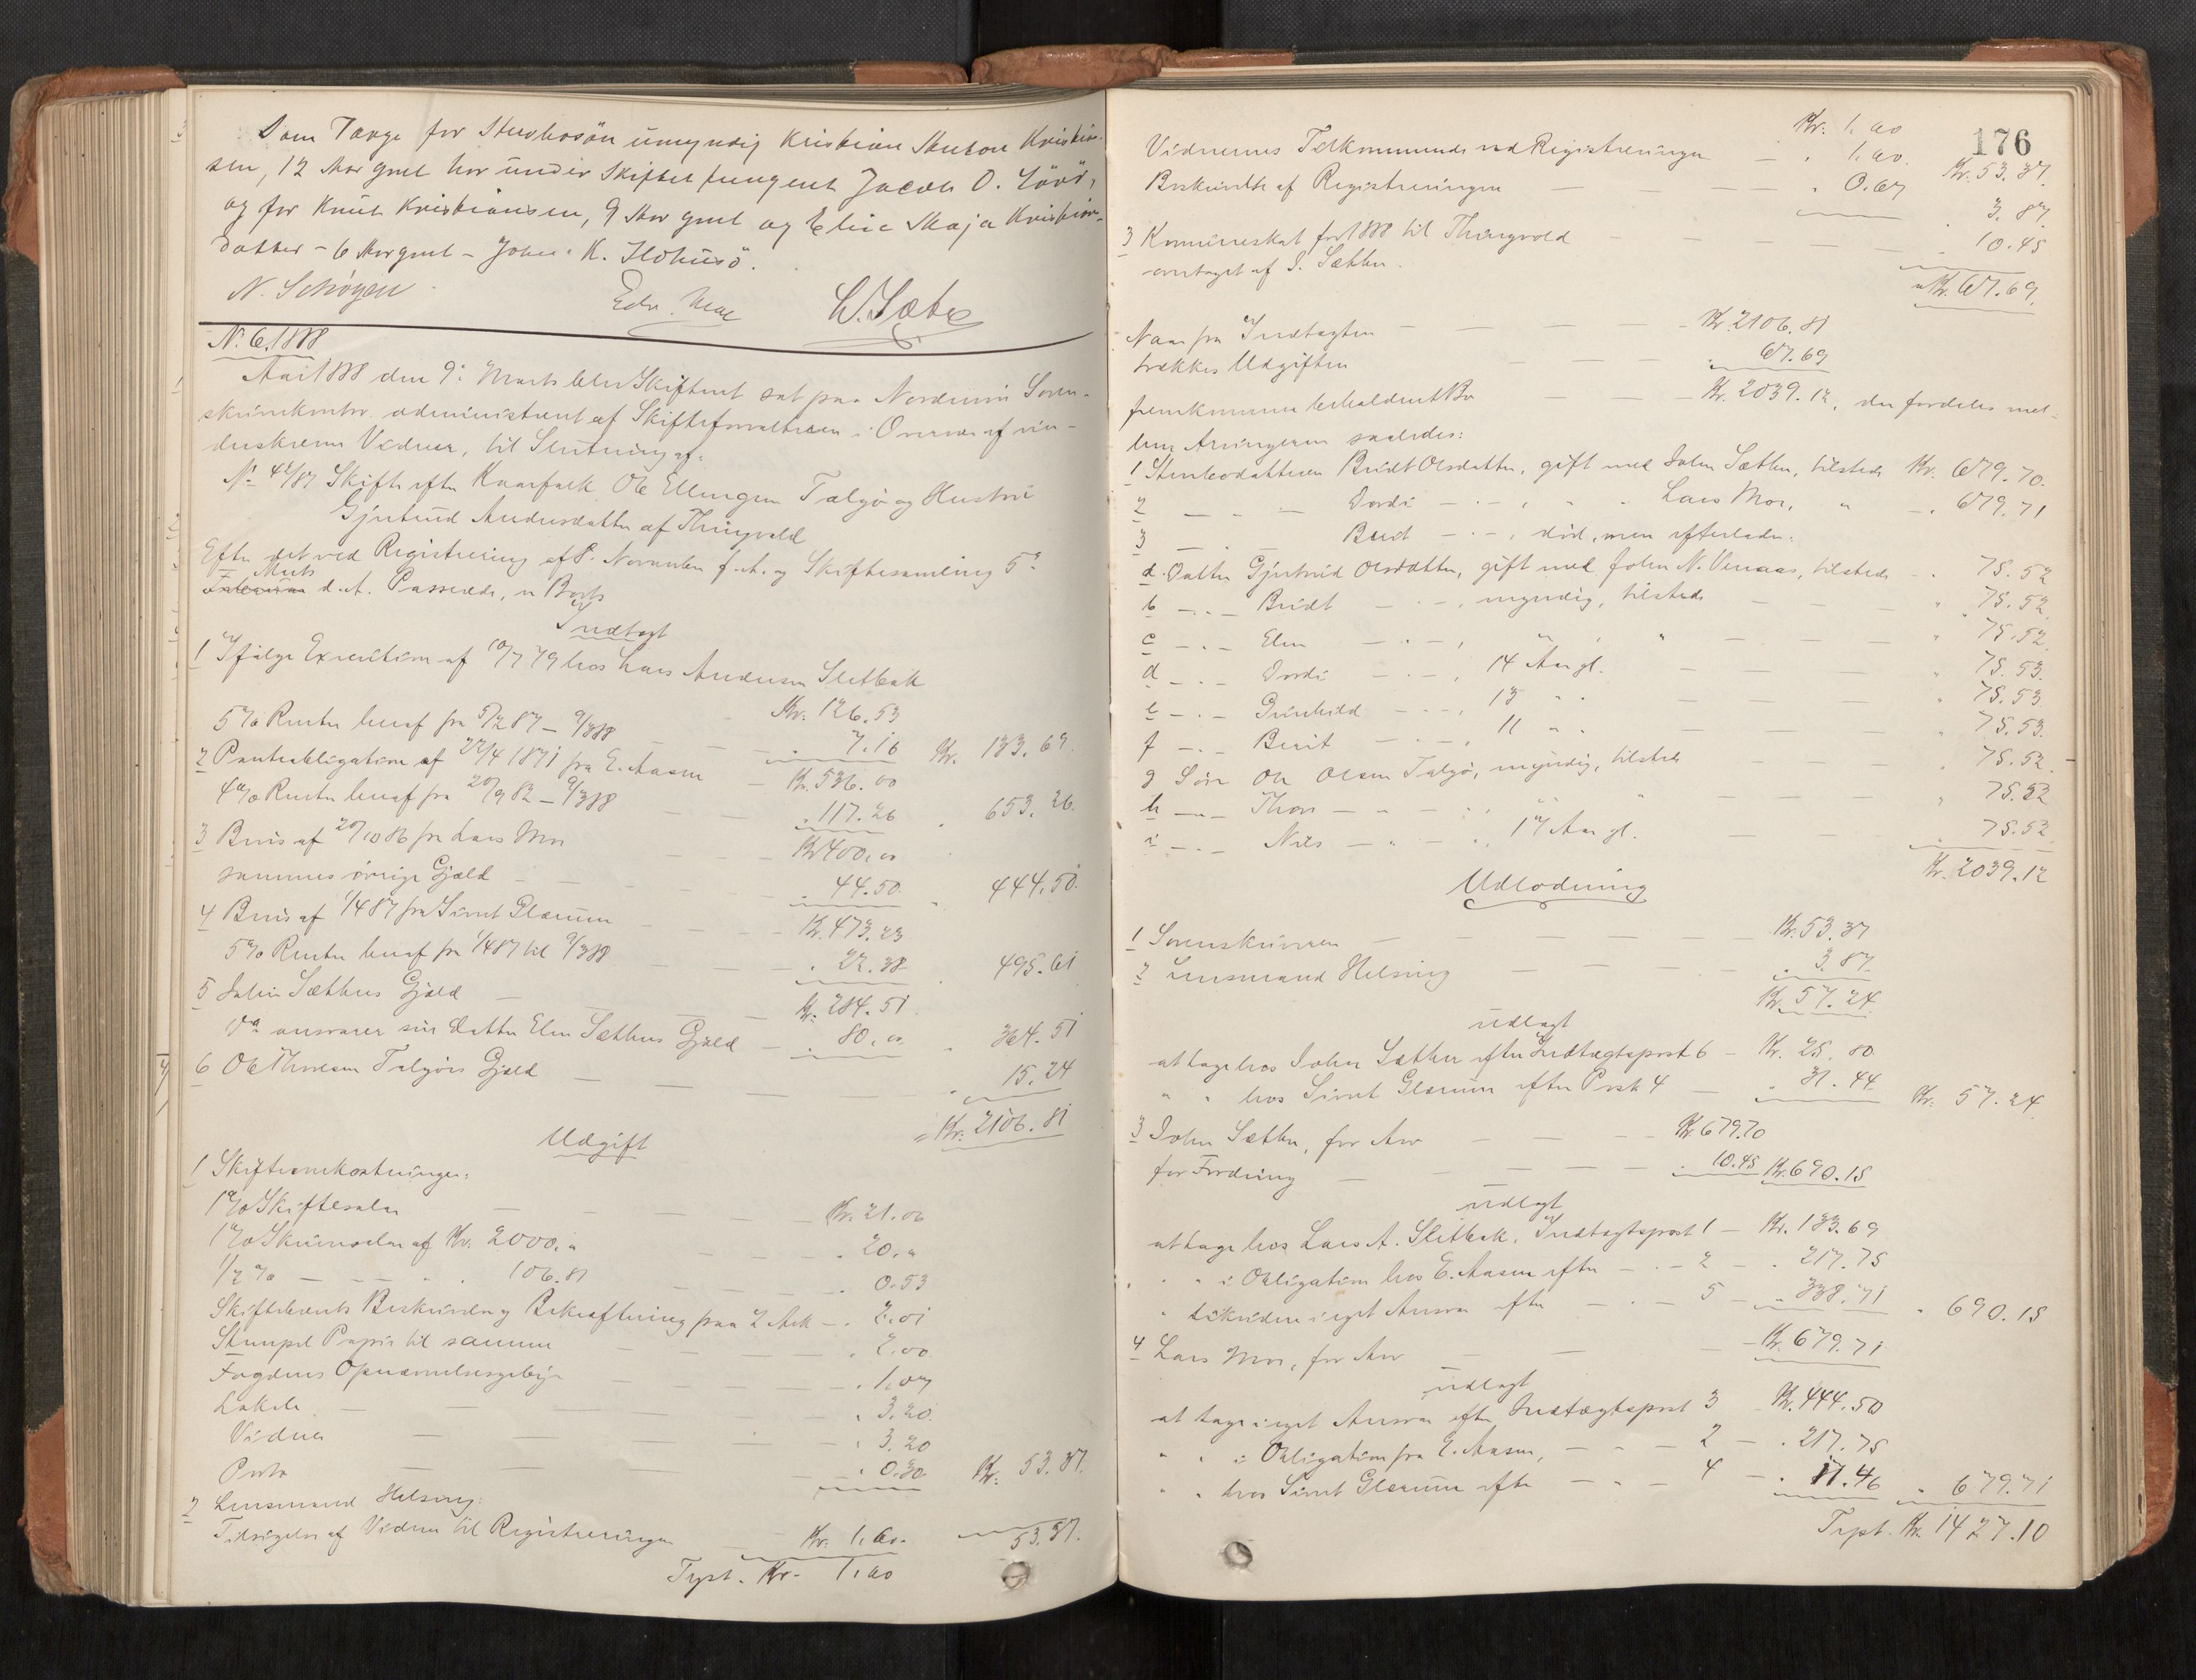 Som Værge for Sterbosøn umyndig Kristian Anton Kristian-
sen, 12 Aar gml har under Skiftet fungeret Jacob O.
og for Knut Kristiansen, 9 Aar gml og Eline Maja Kristians-
datter - 6 Aar gml - John K.
N. Schøyen
W. Sæter
No. 6. 1888
Aar 1888 den 9: Marts blev Skifteret sat paa Nordmøre Soren-
skriverkontor administreret af Skifteforvalteren i Overvær af un-
derskrevne Vidner, til Slutning af:
No 42/87 Skifte efter Kaarfolk Ole Ellingsen Talgø og Hustru
Gjertrud Andersdatter af Thingvold
Efter det ved Registrering af 8. November f. A. og Skiftesamling 5te
Marts
Februar d. A. Passerede, er Boets
Indtægt
1 Ifølge Execution af 10/7 79 hos Lars Andersen Sletbak
Kr. 126.53
5% Renter heraf fra 5/2 87 - 9/3 88 — — „ 7.16 Kr. 133.69.
2 Panteobligation af 22/4 1871 fra E. Aasen Kr. 536.00
4% Renter heraf fra 20/9 82 - 9/3 88 — „ 117.26 „ 653.26.
3 Bevis af 20/10 86 fra Lars Mor — Kr 400,00
sammes øvrige Gjæld — „ 44.50 „ 444.50.
4 Bevis af 1/4 87 fra Sivert Glærum — Kr. 473.23
5% Renter heraf fra 1/4 87 til 9/3 88 — „ 22.38 „ 495.61
5 John Sæthers Gjæld — Kr. 284.51
do ansvarer sin Datter Elen Sæthers Gjæld — „ 80,00 „ 364.51
6 Ole Thoresen Talgøs Gjæld — — „ 15.24
= Kr. 2106.81
Udgift
1 Skifteomkostninger:
1% Skiftesalær — — Kr. 21.06
1% Skriversalær af Kr. 2000,„ — „ 20,„
1/2 % — — „ 106.81 — „ 0.53
Skiftebrevets Beskrivelse og Bekræftning paa 2 Ark — „ 2.01
Stempel Papir til samme — „ 2.00.
Fogdens Opnævnelsesgebyr — „ 1.07
Lokale — — „ 3.20.
Vidner — — „ 3.20
Porto — — „ 0.30 Kr. 53.37.
2 Lensmand Helsing:
Tilsigelse af Vidner til Registreringen Kr. 1.60. 53.37.
Trpt. Kr. 1.60
176
Kr. 1.60 Kr. 53.37.
Vidnernes Tilkommende ved Registreringen — „ 1.60.
Beskrivelse af Registreringen — — „ 0.67
3.87.
3 Kommuneskat for 1888 til Thingvold — — „ 10.45
overtaget af J. Sæther.
= Kr. 67.69.
Naar fra Indtægten — — Kr. 2106.81
trækkes Udgiften — — „ 67.69
fremkommer beholdent Bo — — Kr. 2039.12, der fordeles mel-
lem Arvingerne saaledes:
1 Sterbodatteren Beret Olsdatter, gift med John Sæther, tilstede Kr. 679.70.
2 — „ — Dordi — „ — , „ „ Lars Mor, „ — „ 679.71
3 — „ — — „ — , død, men efterlader:
a. Datter Gjertrud Olsdatter, gift med John N. Venaas, tilstede — „ 75.52
b — „ — Beret — „ — , myndig, tilstede — „ 75.52
c — „ — Elen — „ — , „ , „ — „ 75.52
d — „ — Dordi — „ — , 14 Aar gl. — „ 75.53
e — „ — Gunhild — „ — , 13 „ „ — „ 75.53
f — „ — Berit — „ — , 11 „ „ — „ 75.53.
g Søn Ole Olsen Talgø, myndig, tilstede — „ 75.52
h — „ — Thore — „ — „ , „ „ — „ 75.52
i — „ — Nils — „ — „, 17 Aar gl. — „ 75.52
Kr. 2039.12
Udlodning
1 Sorenskriveren — — Kr. 53.37
2 Lensmand Helsing — — „ 3.87
Kr. 57.24
udlagt
at tage hos John Sæther efter Indtægtspost 6 — Kr. 25.80
„ „ hos Sivert Glærum efter Post 4 — „ 31.44 Kr. 57.24
3 John Sæther, for Arv — Kr. 679.70
for Fordring — — „ 10.45 Kr. 690.15
udlagt
at tage hos Lars A. Sletbak, Indtægtspost 1 — Kr. 133.69
„ „ i Obligation hos E. Aasen efter — „ — 2 — „ 217.75
„ likvidere i eget Ansvar efter — „ — 5 — „ 338.71 „ 690.15
4 Lars Mor, for Arv — — Kr. 679.71
udlagt
at tage i eget Ansvar efter Indtægtspost 3 Kr. 444.50
„ „ i Obligation fra E. Aasen, — „ — 2 — „ 217.75
„ „ hos Sivert Glærum efter — „ — 4 — „ 17.46 „ 679.71
Trpt. Kr. 1427.10